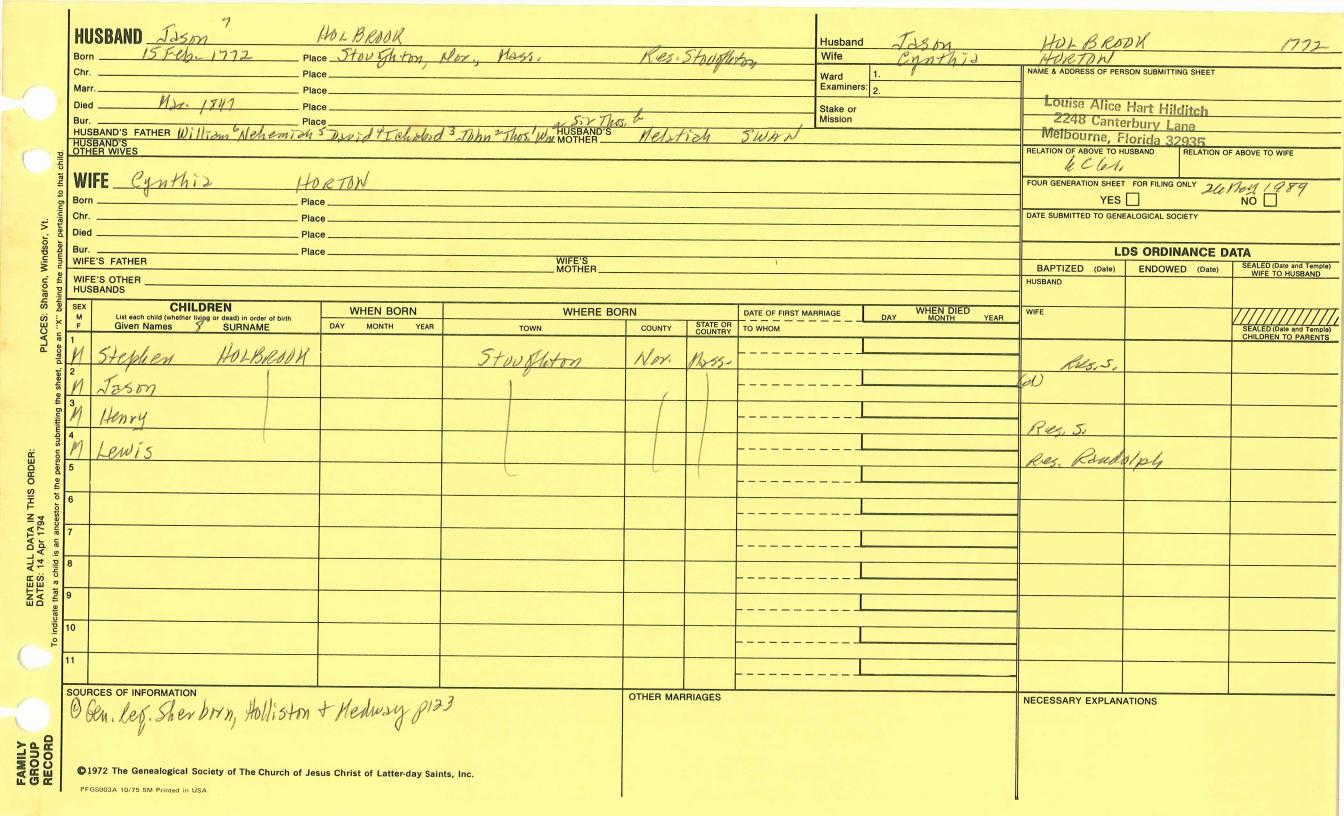 HUSBAND Jason 7 HOLBROOK
Born 15 Feb. 1772 Place Stoughton, Nor., Mass. Res. Stoughton
Chr. Place
Marr. Place
Died Mar. 1847 Place
Bur. Place
HUSBAND'S FATHER William 6 Nehemiah 5 David 4 Ichabod 3 John 2 Thos. 1 Wm Sir Thos. b HUSBAND'S MOTHER SWAN
HUSBAND'S OTHER WIVES
WIFE Cynthia HORTON
Born Place
Chr. Place
Died Place
Bur. Place
WIFE'S FATHER WIFE'S MOTHER
WIFE'S OTHER HUSBANDS
Husband Jason HOLBROOK 1772
Wife Cynthia HORTON
Ward Examiners: 1.
2.
Stake or Mission
NAME & ADDRESS OF PERSON SUBMITTING SHEET
Louise Alice Hart Hilditch
2248 Canterbury Lane
Melbourne, Florida 32935
RELATION OF ABOVE TO HUSBAND RELATION OF ABOVE TO WIFE
FOUR GENERATION SHEET FOR FILING ONLY 26 May 1989
YES NO
DATE SUBMITTED TO GENEALOGICAL SOCIETY
LDS ORDINANCE DATA
BAPTIZED (Date) ENDOWED (Date) SEALED (Date and Temple) WIFE TO HUSBAND
HUSBAND
WIFE
SEALED (Date and Temple) CHILDREN TO PARENTS
SEX M F
CHILDREN
List each child (whether living or dead) in order of birth
Given Names 8 SURNAME
WHEN BORN
DAY MONTH YEAR
WHERE BORN
TOWN COUNTY STATE OR COUNTRY
DATE OF FIRST MARRIAGE
TO WHOM
WHEN DIED
DAY MONTH YEAR
1 M Stephen HOLBROOK Stoughton Nor. Mass. Res. S.
2 M Jason (d)
3 M Henry Res. S.
4 M Lewis Res. Randolph
5
6
7
8
9
10
11
SOURCES OF INFORMATION
Gen. Reg. Sherborn, Holliston & Medway p123
OTHER MARRIAGES
NECESSARY EXPLANATIONS
©1972 The Genealogical Society of The Church of Jesus Christ of Latter-day Saints, Inc.
PFGS003A 10/75 5M Printed in USA
FAMILY GROUP RECORD
ENTER ALL DATA IN THIS ORDER:
DATES: 14 Apr 1794
PLACES: Sharon, Windsor, Vt.
To indicate that a child is an ancestor of the person submitting the sheet, place an "X" behind the number pertaining to that child.